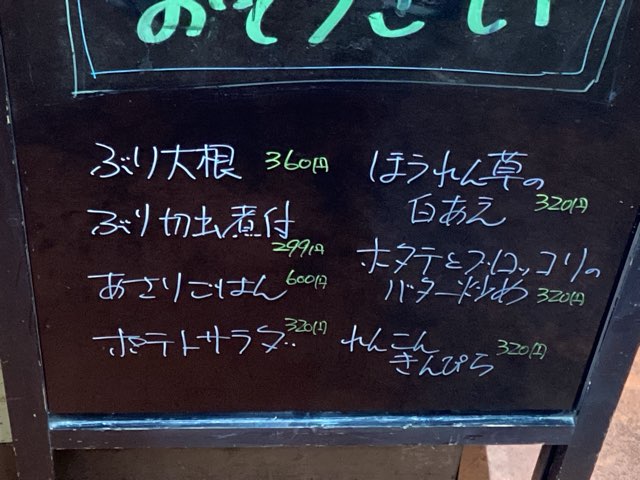 おそうざい
ぶり大根 360円
ぶり切出煮付
299円
あさりごはん 600円
ポテトサラダ 320円
ほうれん草の
白あえ 320円
ホタテとブロッコリの
バター炒め 320円
れんこん
きんぴら 320円